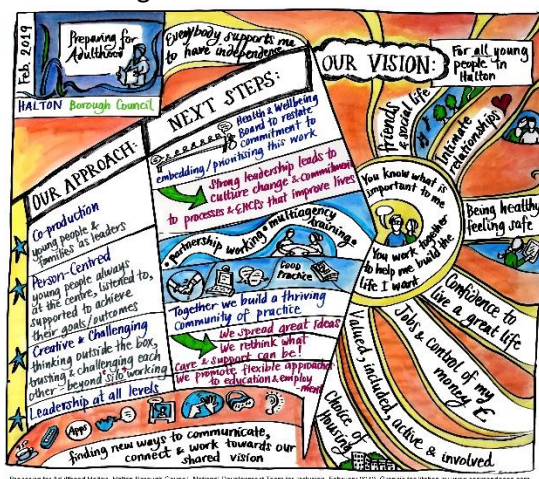 Feb. 2019
Preparing for
Adulthood
HALTON Borough Council
Everybody supports me
to have independence
OUR VISION:
For all young
people in
Halton
OUR APPROACH:
Co-production
young people &
families as leaders
Person-Centred
young people always
at the centre, listened to,
supported to achieve
their goals/outcomes
Creative & Challenging
thinking outside the box,
trusting & challenging each
other - beyond silo working
Leadership at all levels
NEXT STEPS:
Health & Wellbeing
Board to restate
commitment to
embedding/prioritising this work
Strong leadership leads to
culture change & commitment
to processes & EHCPs that improve lives
Partnership working • multiagency training •
GOOD
PRACTICE
Together we build a thriving
community of practice
We spread great ideas
We rethink what
care & support can be!
We promote flexible approaches
to education & employ
-ment
Apps
finding new ways to communicate,
connect & work towards our
shared vision
You know what is
important to me
You work together
to help me build the
life I want
friends
& social life
Intimate
relationships
Being healthy
feeling safe
Confidence to
live a great life
Jobs & control of my
money £
Valued, included, active & involved
Choice of
housing